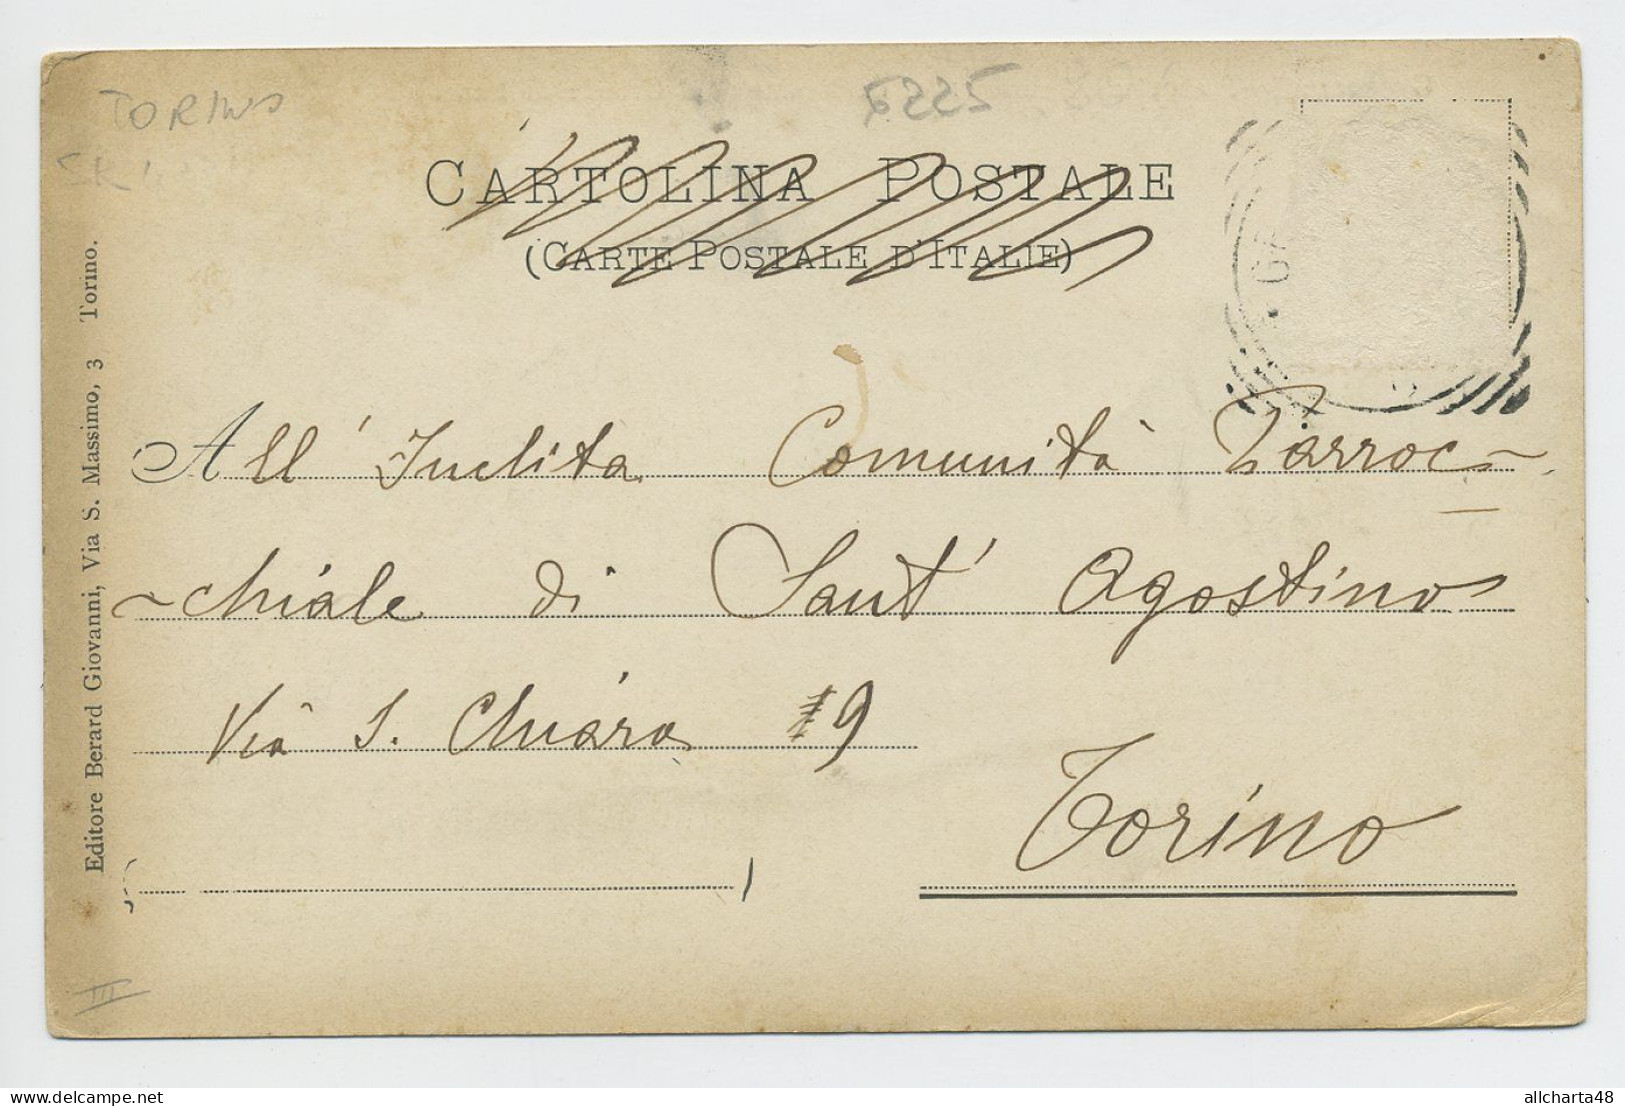 TORINO
5225
CARTOLINA POSTALE
(CARTE POSTALE D'ITALIE)
All' Inclita Comunità Parroc-
-chiale di Sant' Agostino
Via S. Chiara 9
Torino
Editore Berard Giovanni, Via S. Massimo, 3 Torino.
III
allcharta48